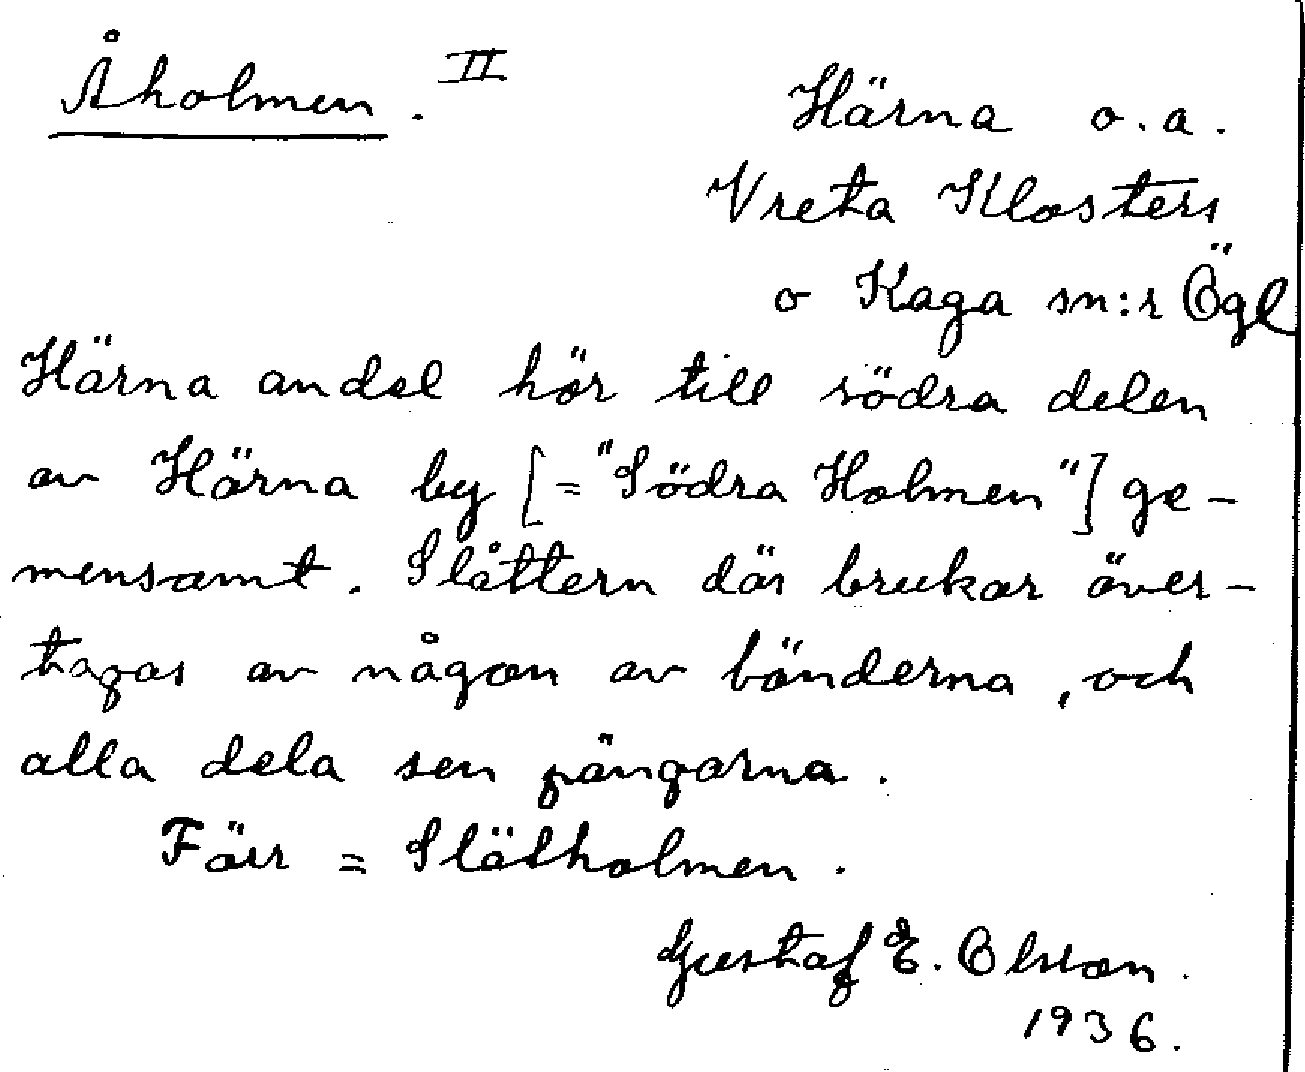 Åholmen. II
Härna o.a.
Vreta Klosters
o Kaga sn:r Ögl
Härna andel hör till södra delen
av Härna by [= "Södra Holmen"] ge-
mensamt. Slåttern där brukar över-
tagas av någon av bönderna, och
alla dela sen pängarna.
Förr = Slätholmen.
Gustaf E. Olsson.
1936.